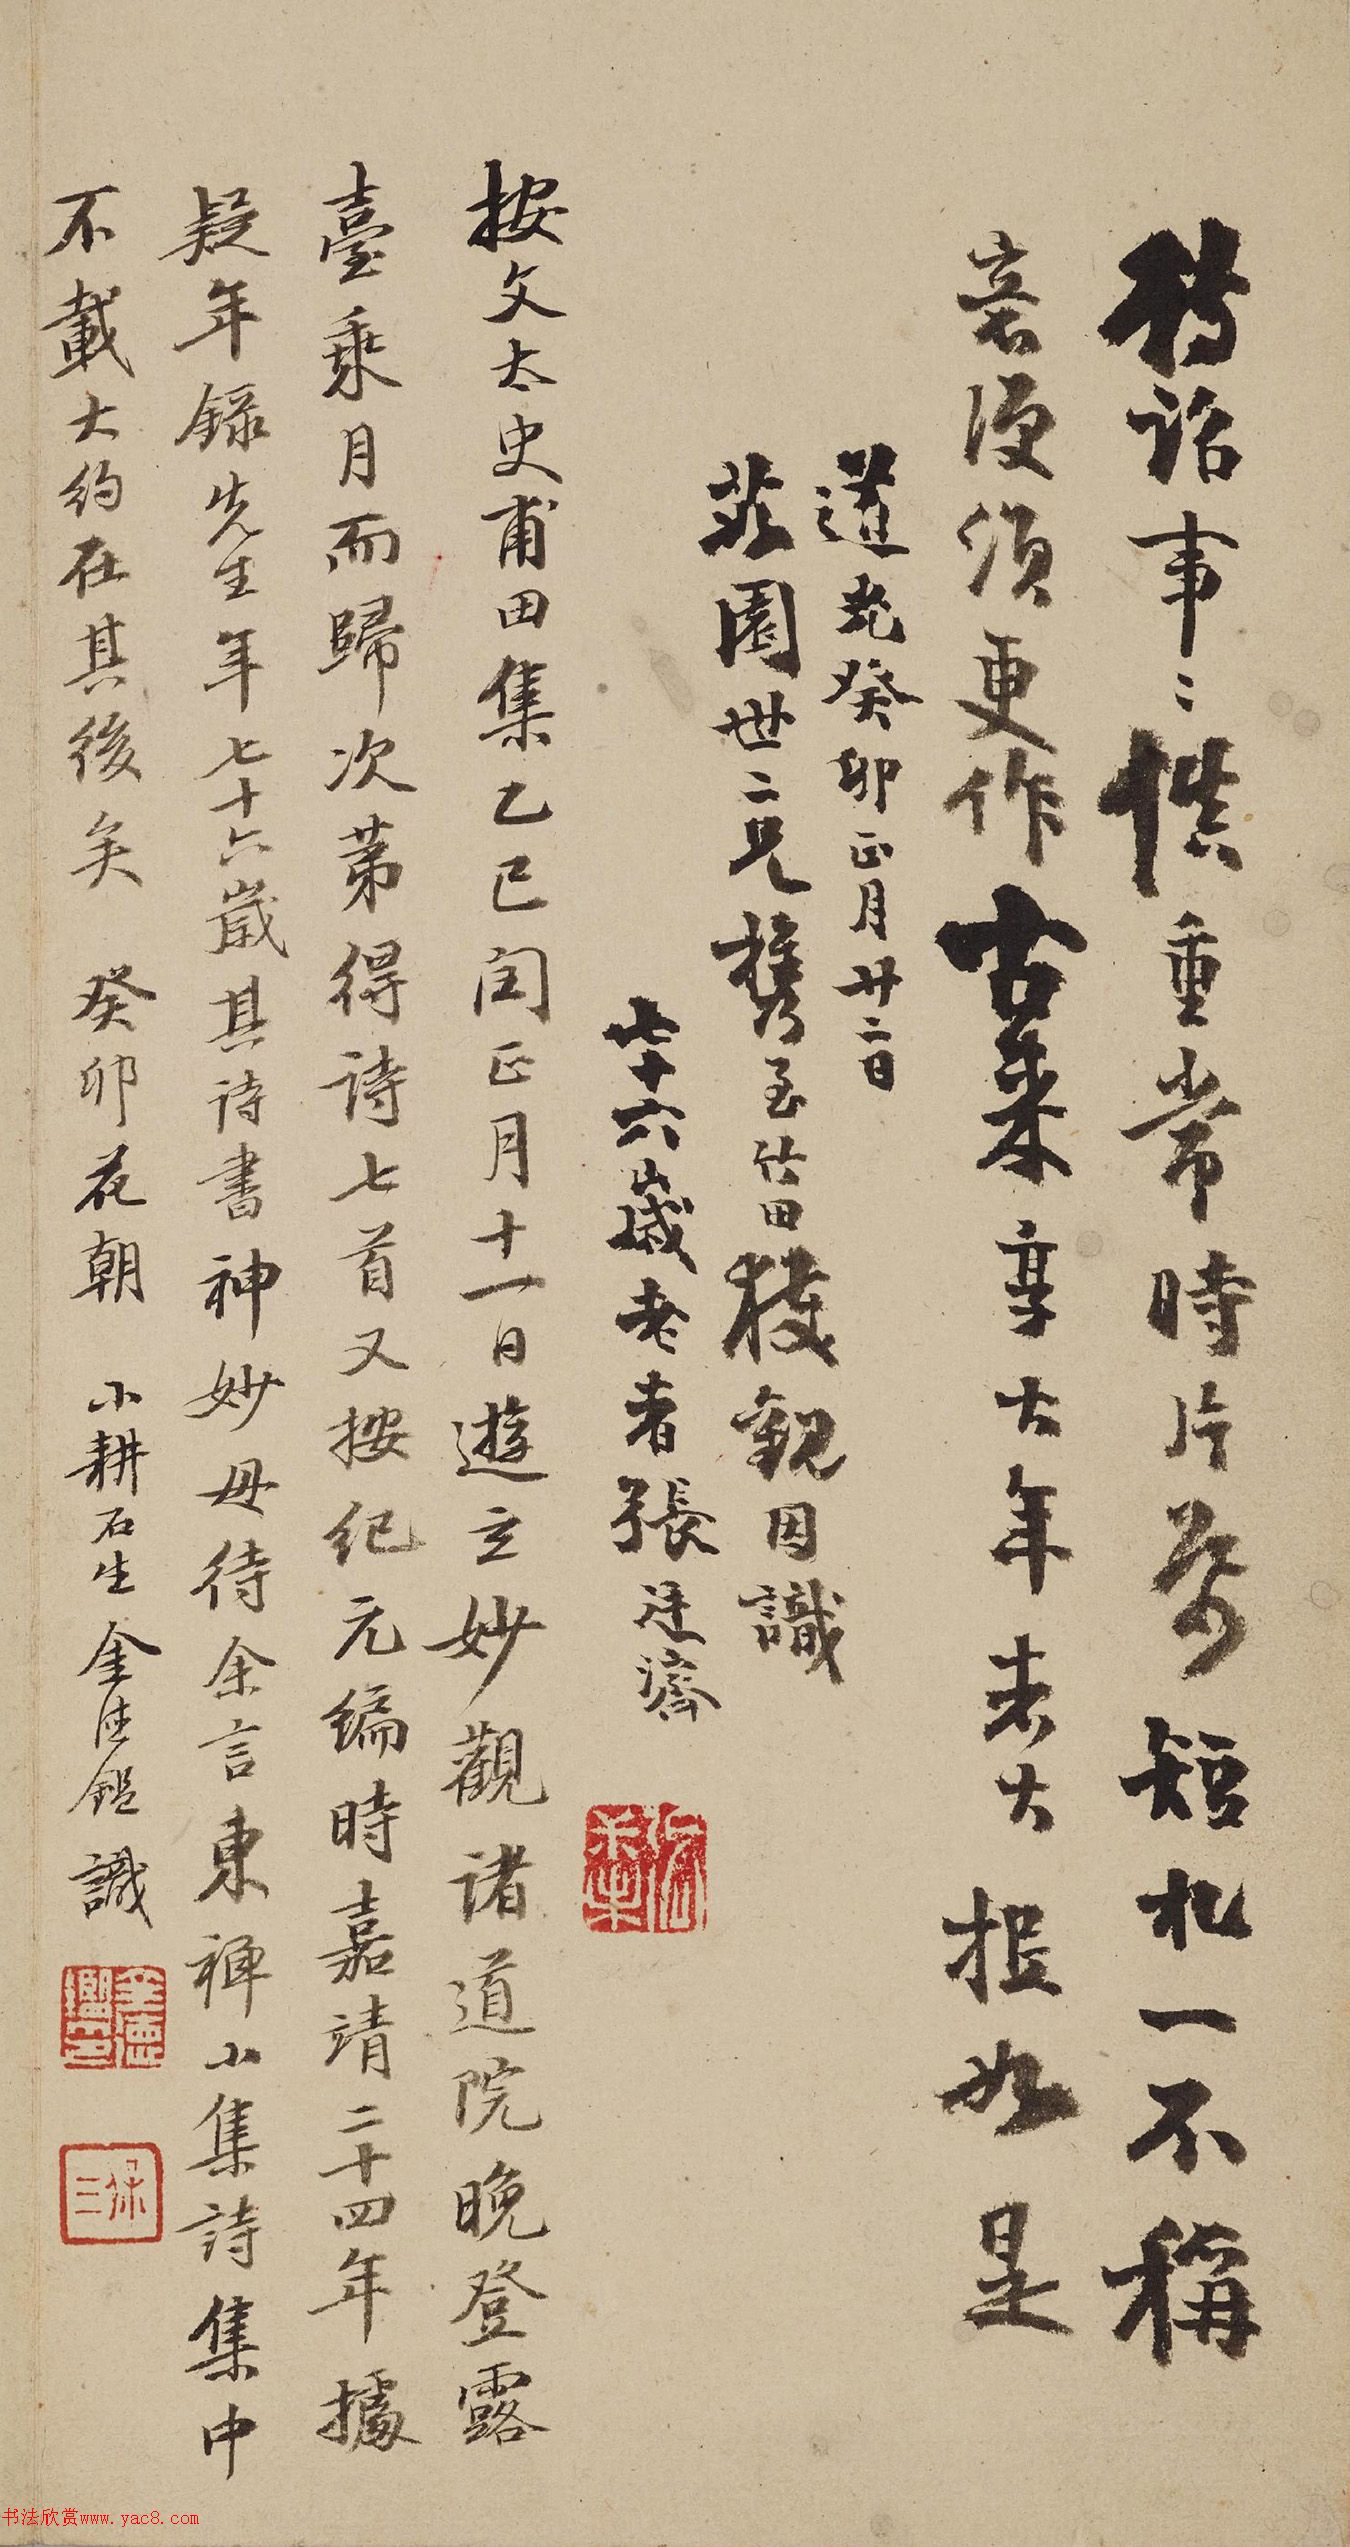 待詔事〻慎重常時片帋短札一不稱
意便須更作古來享大年者大抵如是
道光癸卯正月廿二日
莊園世二兄攜至竹田獲觀因識
七十六歲老者張廷濟
按文太史甫田集乙巳閏正月十一日遊玄妙觀諸道院晚登露
臺乘月而歸次第得詩七首又按紀元編時嘉靖二十四年據
疑年錄先生年七十六歲其詩書神妙毋待余言東禪小集詩集中
不載大約在其後矣 癸卯花朝 小耕石生金德鑑識
书法欣赏www.yac8.com